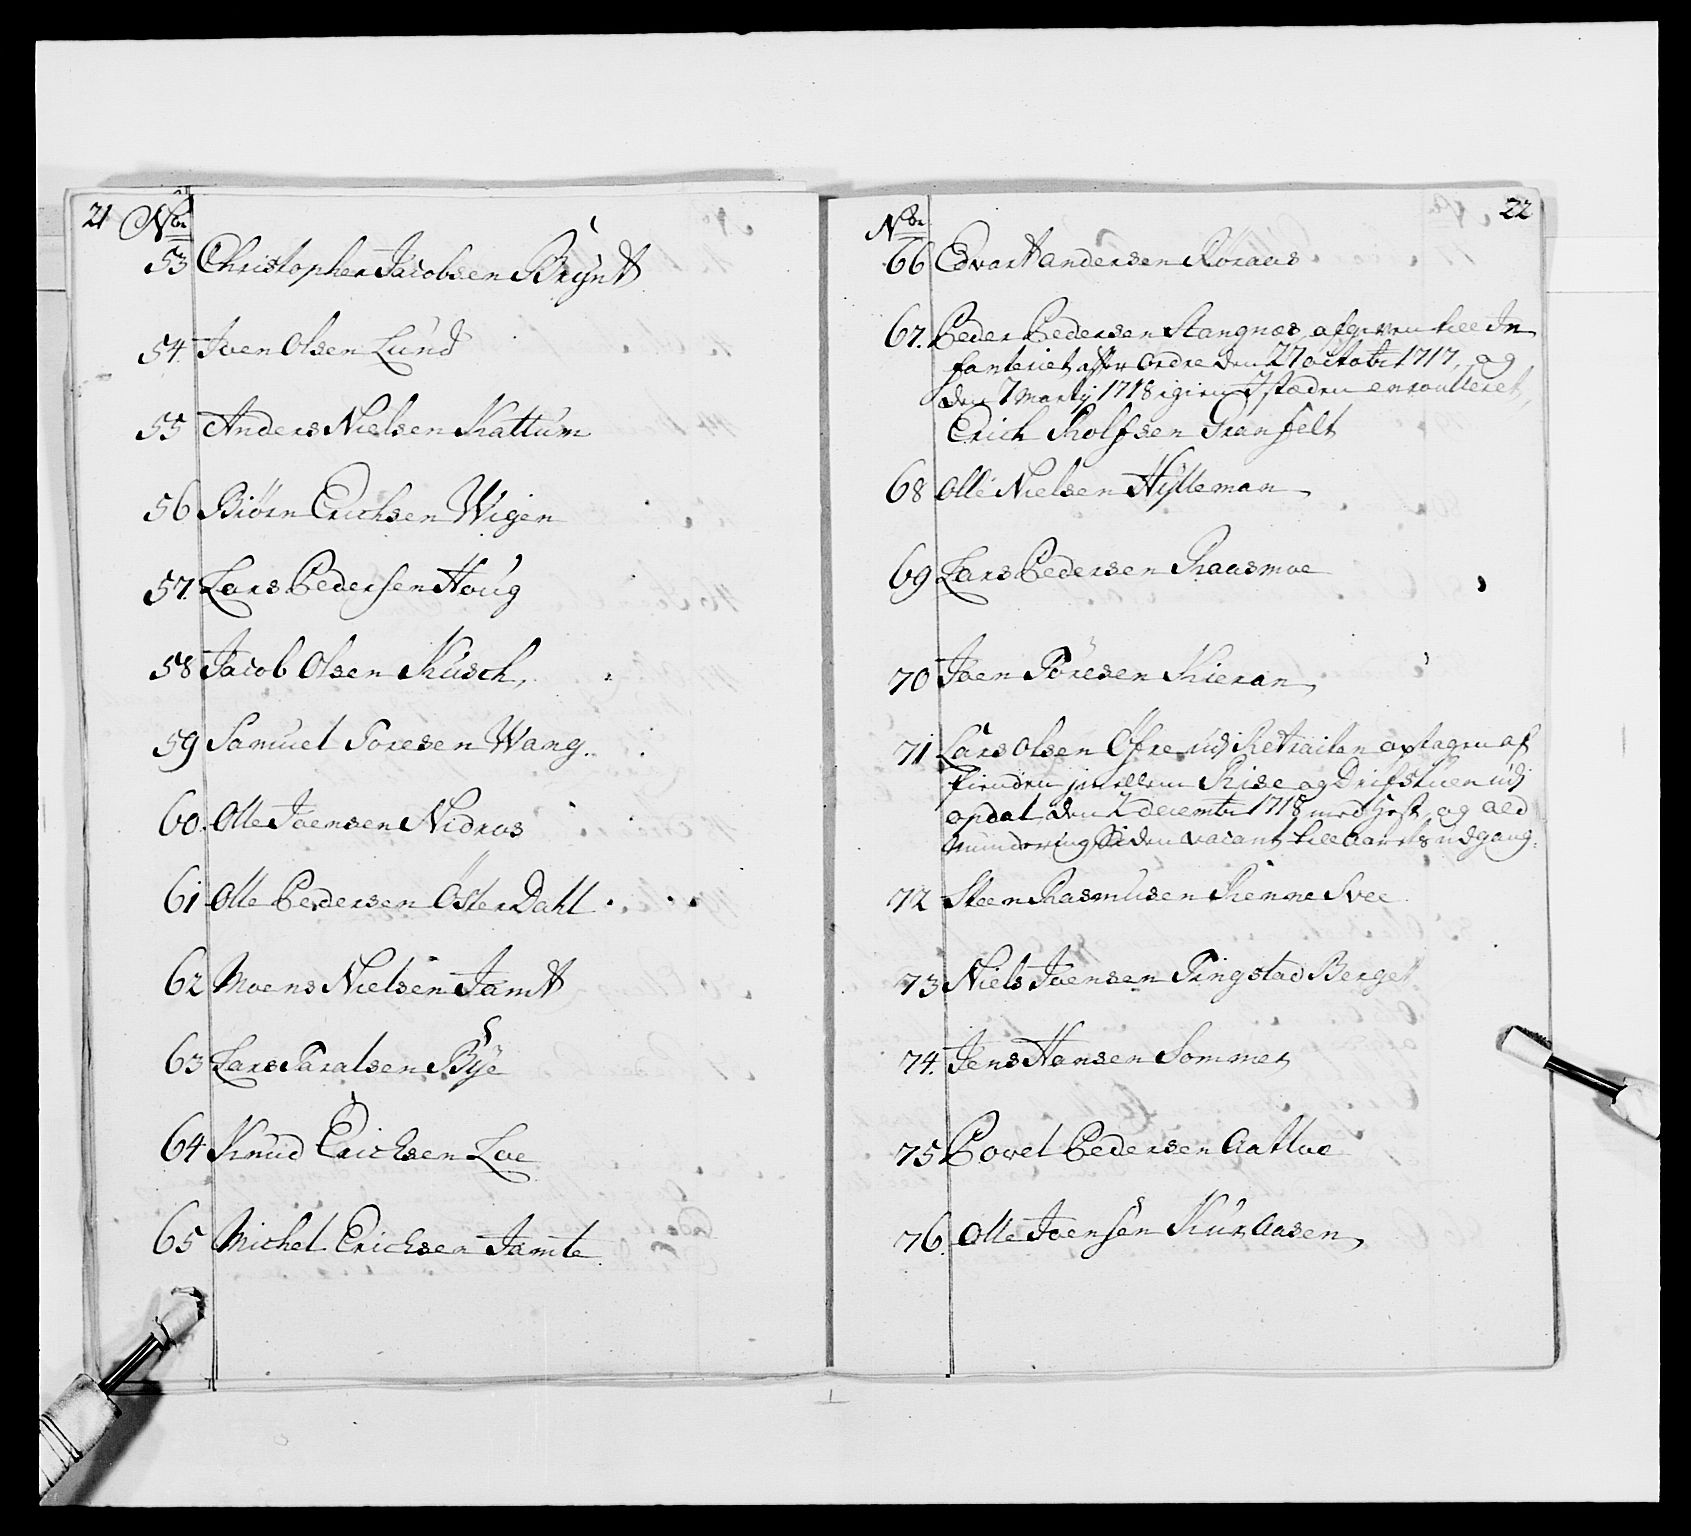 21 Nor
53 Christopher Jacobsen Brynt
54. Joen Olsen Lund
55 Anders Nielsen Kattum
56 Biörn Erichsen Wigen
57. Lars Pedersen Houg
58 Jacob Olsen Kusch,
59 Samuel Toresen Wang.
60. Olle Joensen Nidros
61 Olle Pedersen ÖsterDahl
62 Moens Nielsen Jamt
63 Lars Taralsen Bÿe
64 Knud Erichsen Loe
65 Michel Erichsen Jamte
Nor 22
66 Edvart andersen Röraas
67. Peder Pedersen Stangnæs afgiven till In
fanteriet efter Ordre den 27 octobr 1717, og
den 7 Martij 1718 igien I stæden enroulleret,
Erich Rolfsen Granfelt
68 Olle Nielsen Hÿlleman
69 Lars Pedersen Raasmoe
70 Joen Töresen Kieran
71 Lars Olsen Öfre udj Retraiten optagen af
fienden jmellem Rise og Drifstuen udj
opdal den 2 decembr 1718 med Hest og ald
Mundering Siden vacant till Aarets udgang.
72 Steen Rasmusen Renne Svee
73 Niels Joensen Ringstad Berget
74. Jens Hansen Sommer
75 Povel Pedersen Aalboe
76. Olle Joensen Kuraasen